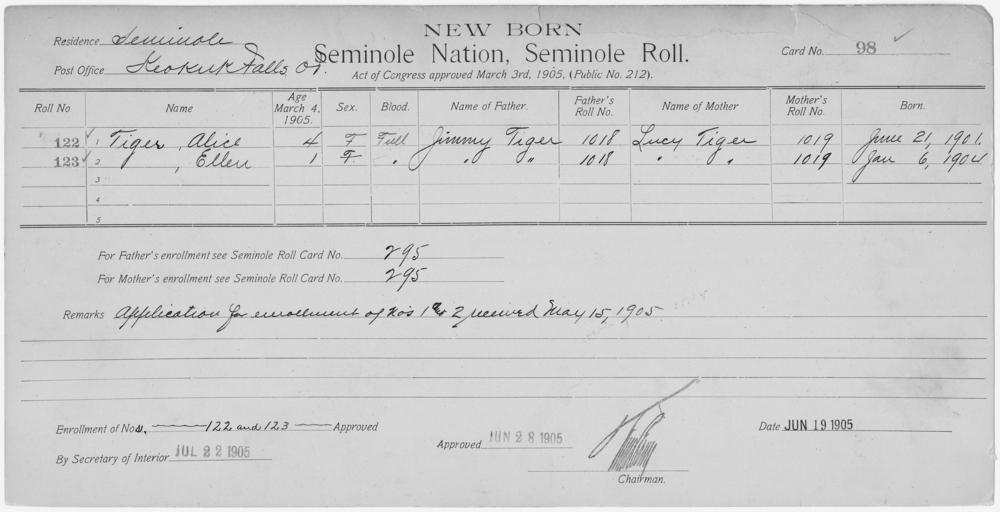 NEW BORN
Residence Seminole
Seminole Nation, Seminole Roll.
Card No. 98
Post Office Keokuk Falls, Ok.
Act of Congress approved March 3rd, 1905, (Public No. 212).
Roll No Name Age March 4, 1905. Sex. Blood. Name of Father. Father's Roll No. Name of Mother Mother's Roll No. Born.
122 1 Tiger, Alice 4 F Full Jimmy Tiger 1018 Lucy Tiger 1019 June 21, 1901.
123 2 " , Ellen 1 F " " " 1018 " " 1019 Jan 6, 1904
3
4
5
For Father's enrollment see Seminole Roll Card No. 295
For Mother's enrollment see Seminole Roll Card No. 295
Remarks Application for enrollment of No's 1 & 2 received May 15, 1905.
Enrollment of Nos. 122 and 123 Approved
Approved JUN 28 1905
Date JUN 19 1905
By Secretary of Interior JUL 22 1905
Chairman.